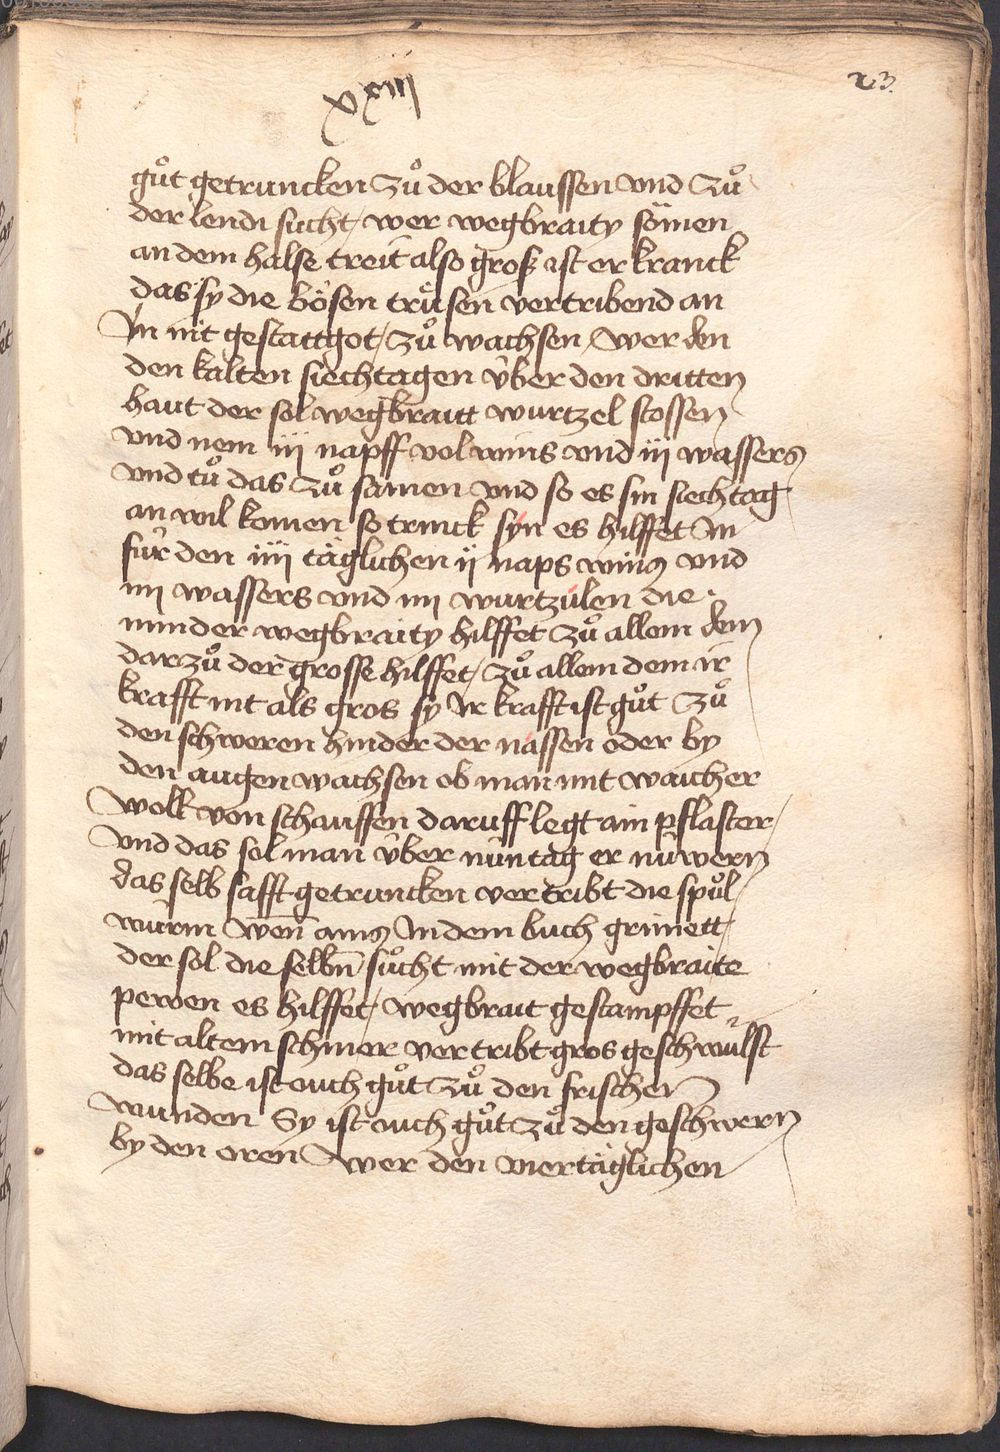 xxiii
23.
guͦt getruncken zuͦ der blaussen vnd zuͦ
der lendi sucht / wer wegbraity sämen
an dem halse treit also groß ist er kranck
das sy die bösen truͤsen vertribend an
In nit gestattgot / zuͦ wachsen / wer den
den kalten siechtagen über den dritten
haut der sol wegbraitt wurtzel stossen
vnd nem iii napff vol wins vnd iii wassers
vnd tuͦ das zuͦ samen vnd so es sin siechtag
an wil komen so trinck syn es hilffet In
für den iiii täglichen ii naps wins vnd
iiii wassers vnd iiii wurtzulen die
minder wegbraity hilffet zuͦ allem dem
darzuͦ der grosse hilffet / zuͦ allem dem ir
krafft nit als gros sy Ir krafft ist guͦt zuͦ
den schweren hinder der nassen oder by
den augen wachsen ob man mit waicher
woll von schauffen daruff legt ain pflaster /
vnd das sol man über nün tag er nüwern
das selb safft getruncken vertribt die spuͦl
würm wen̄ ains In dem buch grimett
der sol die selbn̄ suͦcht mit der wegbraite
pewen es hilffet / wegbrait gestampffet
mit altem schmer vertribt gros geschwulst
das selbe ist ouch guͦt zuͦ den frischen
wunden Sy ist ouch guͦt zuͦ den geschwern
by den oren wer den viertäglichen